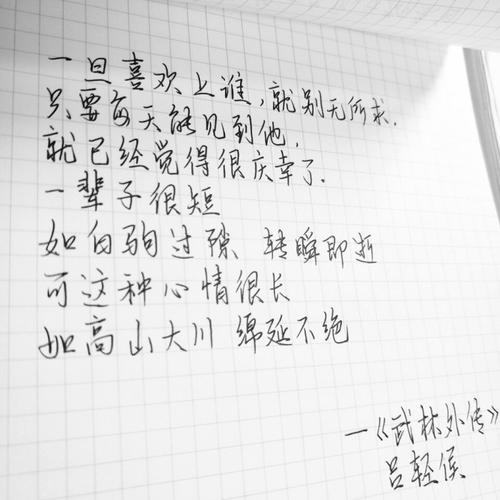 一旦喜欢上谁,就别无所求.
只要每天能见到他,
就已经觉得很庆幸了.
一辈子很短
如白驹过隙 转瞬即逝
可这种心情很长
如高山大川 绵延不绝
—《武林外传》
吕轻侯